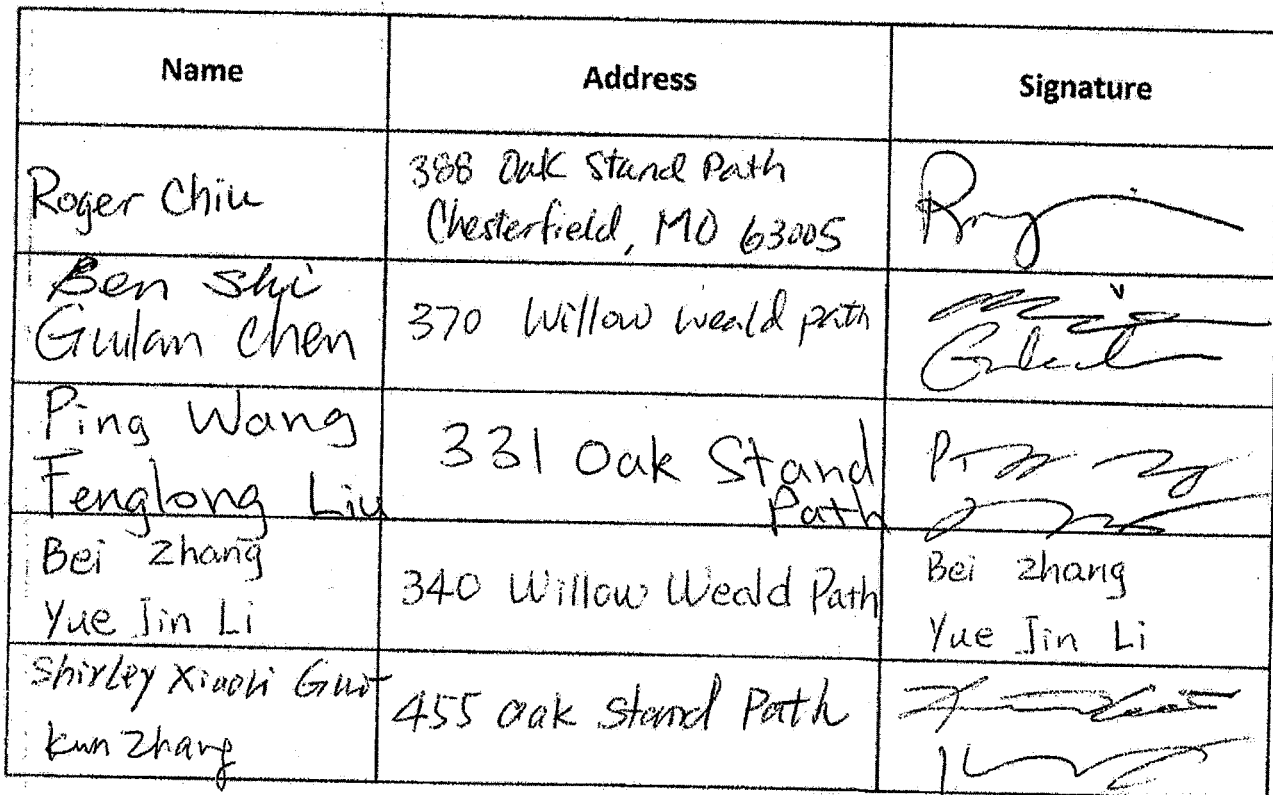 Name Address Signature
Roger Chiu
388 Oak Stand Path
Chesterfield, MO 63005
Ben Shi
Gulan Chen
370 Willow Weald path
Ping Wang
Fenglong Liu
331 Oak Stand
Path
Bei Zhang
Yue Jin Li
340 Willow Weald Path
Bei Zhang
Yue Jin Li
Shirley Xiaoli
Kun Zhang
455 Oak Stand Path